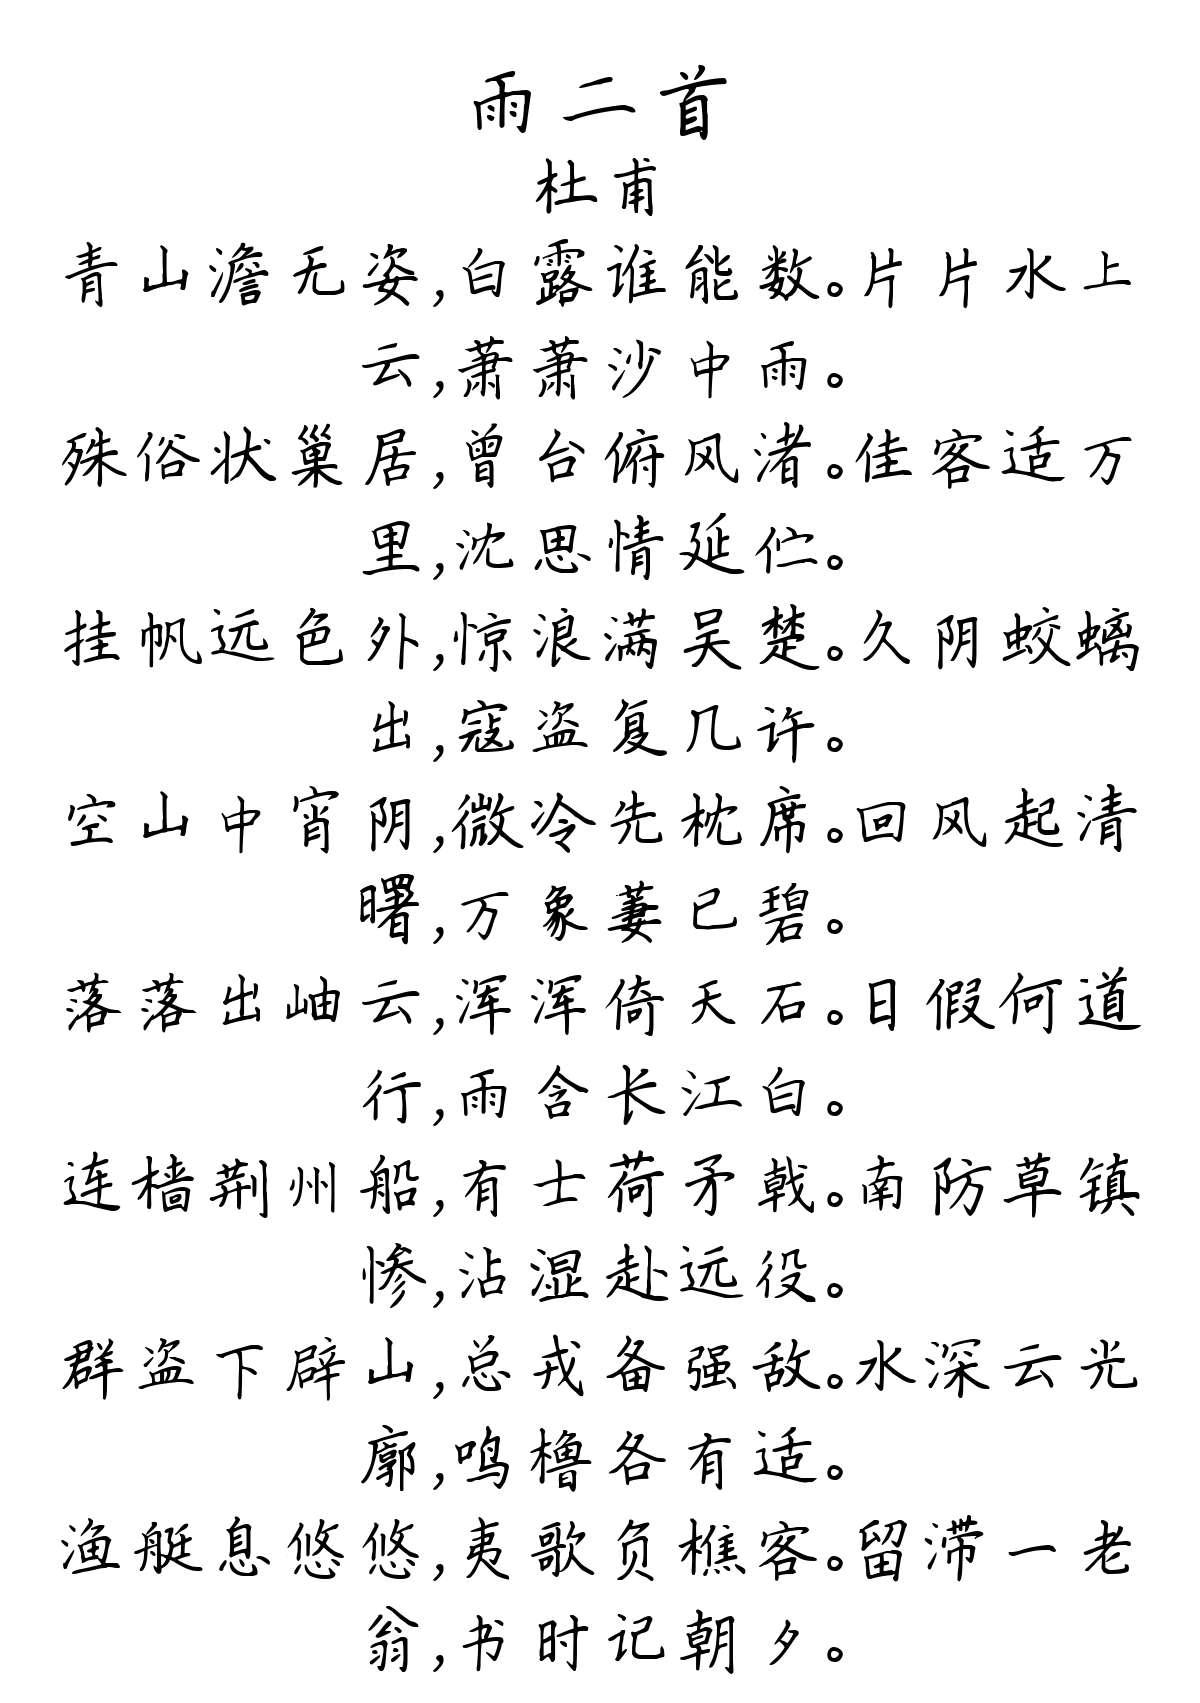 雨二首
杜甫
青山澹无姿,白露谁能数。片片水上
云,萧萧沙中雨。
殊俗状巢居,曾台俯风渚。佳客适万
里,沈思情延伫。
挂帆远色外,惊浪满吴楚。久阴蛟螭
出,寇盗复几许。
空山中宵阴,微冷先枕席。回风起清
曙,万象萋已碧。
落落出岫云,浑浑倚天石。日假何道
行,雨含长江白。
连樯荆州船,有士荷矛戟。南防草镇
惨,沾湿赴远役。
群盗下辟山,总戎备强敌。水深云光
廓,鸣橹各有适。
渔艇息悠悠,夷歌负樵客。留滞一老
翁,书时记朝夕。